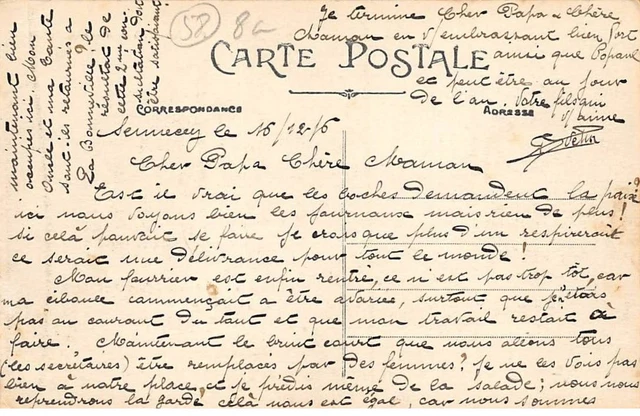 58 8a
CARTE POSTALE
CORRESPONDANCE
ADRESSE
Sennecey le 16/12-16
Cher Papa Chère Maman
Est il vrai que les boches demandent la paix?
ici nous voyons bien les journaux mais rien de plus!
si celà pouvait se faire je crois que plus d'un respirerait
ce serait une délivrance pour tout le monde!
Mon fourrier est enfin rentré, ce n'est pas trop tôt, car
ma caboue commençait a être avariée, surtout que j'étais
pas au courant du tout et que mon travail restait à
faire. Maintenant le bruit court que nous allons tous
(les secrétaires) être remplacés par des femmes? je ne les vois pas
bien à notre place, et je prédis même de la salade; nous nous
reprendrons la garde celà nous est égal, car nous sommes
maintenant bien
occupés ici. Mon
Oncle et ma tante
sont ils retournés a
La Bonneville? le
résultat de
cette
consultation doit
être satisfaisant
Je termine Cher Papa & Chère
Maman en v/ embrassant bien fort
ainsi que Popaul
et peut être au jour
de l'an. Votre fils qui
v/ aime